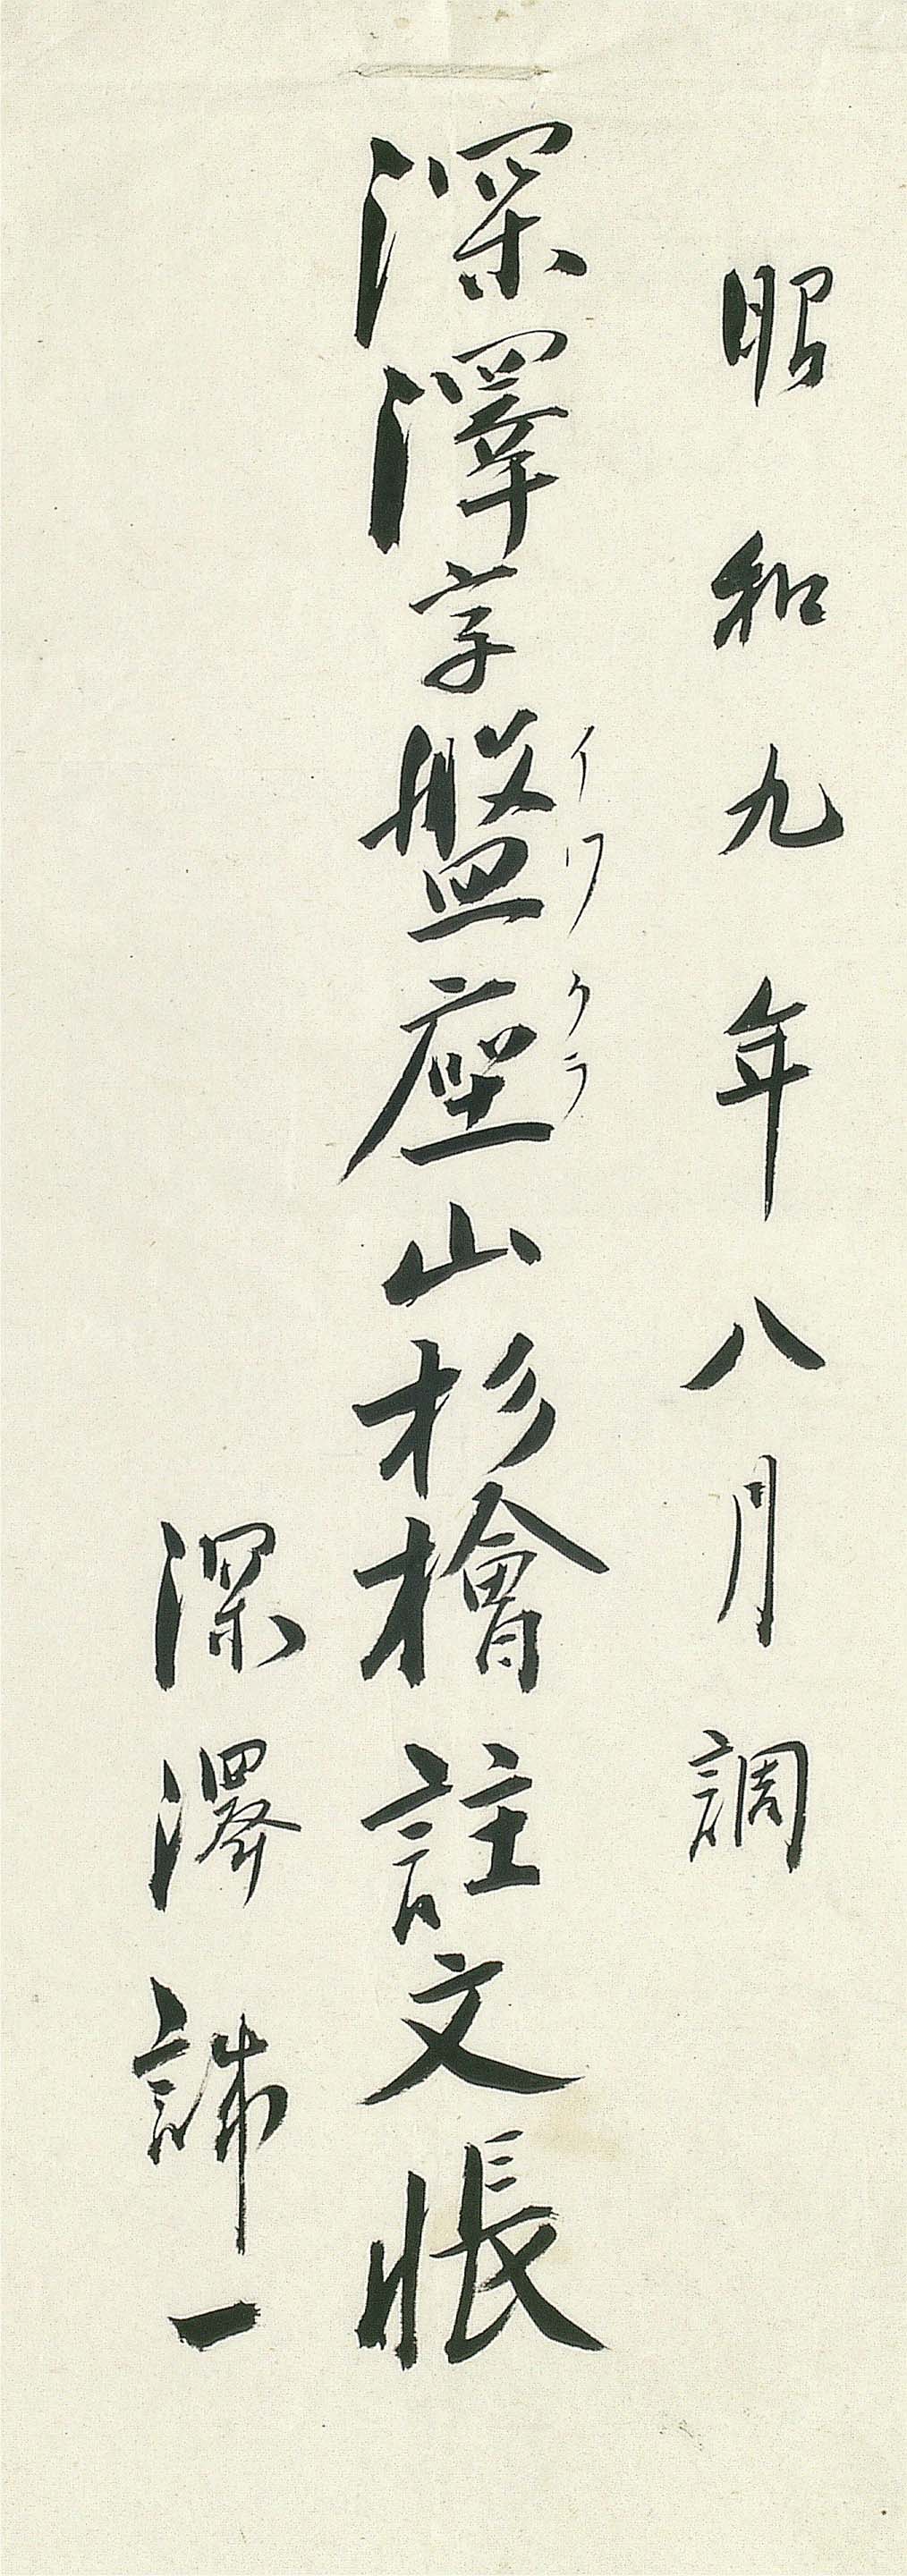 昭和九年八月調
深澤字盤座山杉檜註文帳
イワクラ
深澤誠一